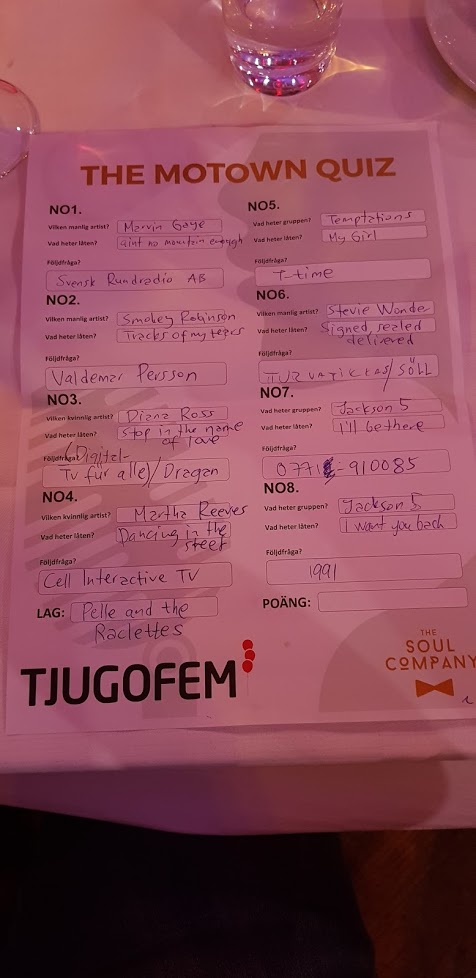 THE MOTOWN QUIZ
NO1.
Vilken manlig artist? Marvin Gaye
Vad heter låten? aint no mountain enough
Följdfråga?
Svensk Rundradio AB
NO2.
Vilken manlig artist? Smokey Robinson
Vad heter låten? Tracks of my tears
Följdfråga?
Valdemar Persson
NO3.
Vilken kvinnlig artist? Diana Ross
Vad heter låten? stop in the name
of love
Följdfråga? (Digital-
Tv für alle) / Dragan
NO4.
Vilken kvinnlig artist? Martha Reeves
Vad heter låten? Dancing in the
street
Följdfråga?
Cell Interactive TV
LAG: Pelle and the
Raclettes
NO5.
Vad heter gruppen? Temptations
Vad heter låten? My Girl
Följdfråga?
T-time
NO6.
Vilken manlig artist? Stevie Wonder
Vad heter låten? Signed sealed
delivered
Följdfråga?
/ SÖLL
NO7.
Vad heter gruppen? Jackson 5
Vad heter låten? I'll be there
Följdfråga?
0771-910085
NO8.
Vad heter gruppen? Jackson 5
Vad heter låten? I want you back
Följdfråga?
1991
POÄNG:
TJUGOFEM
THE
SOUL
COMPANY